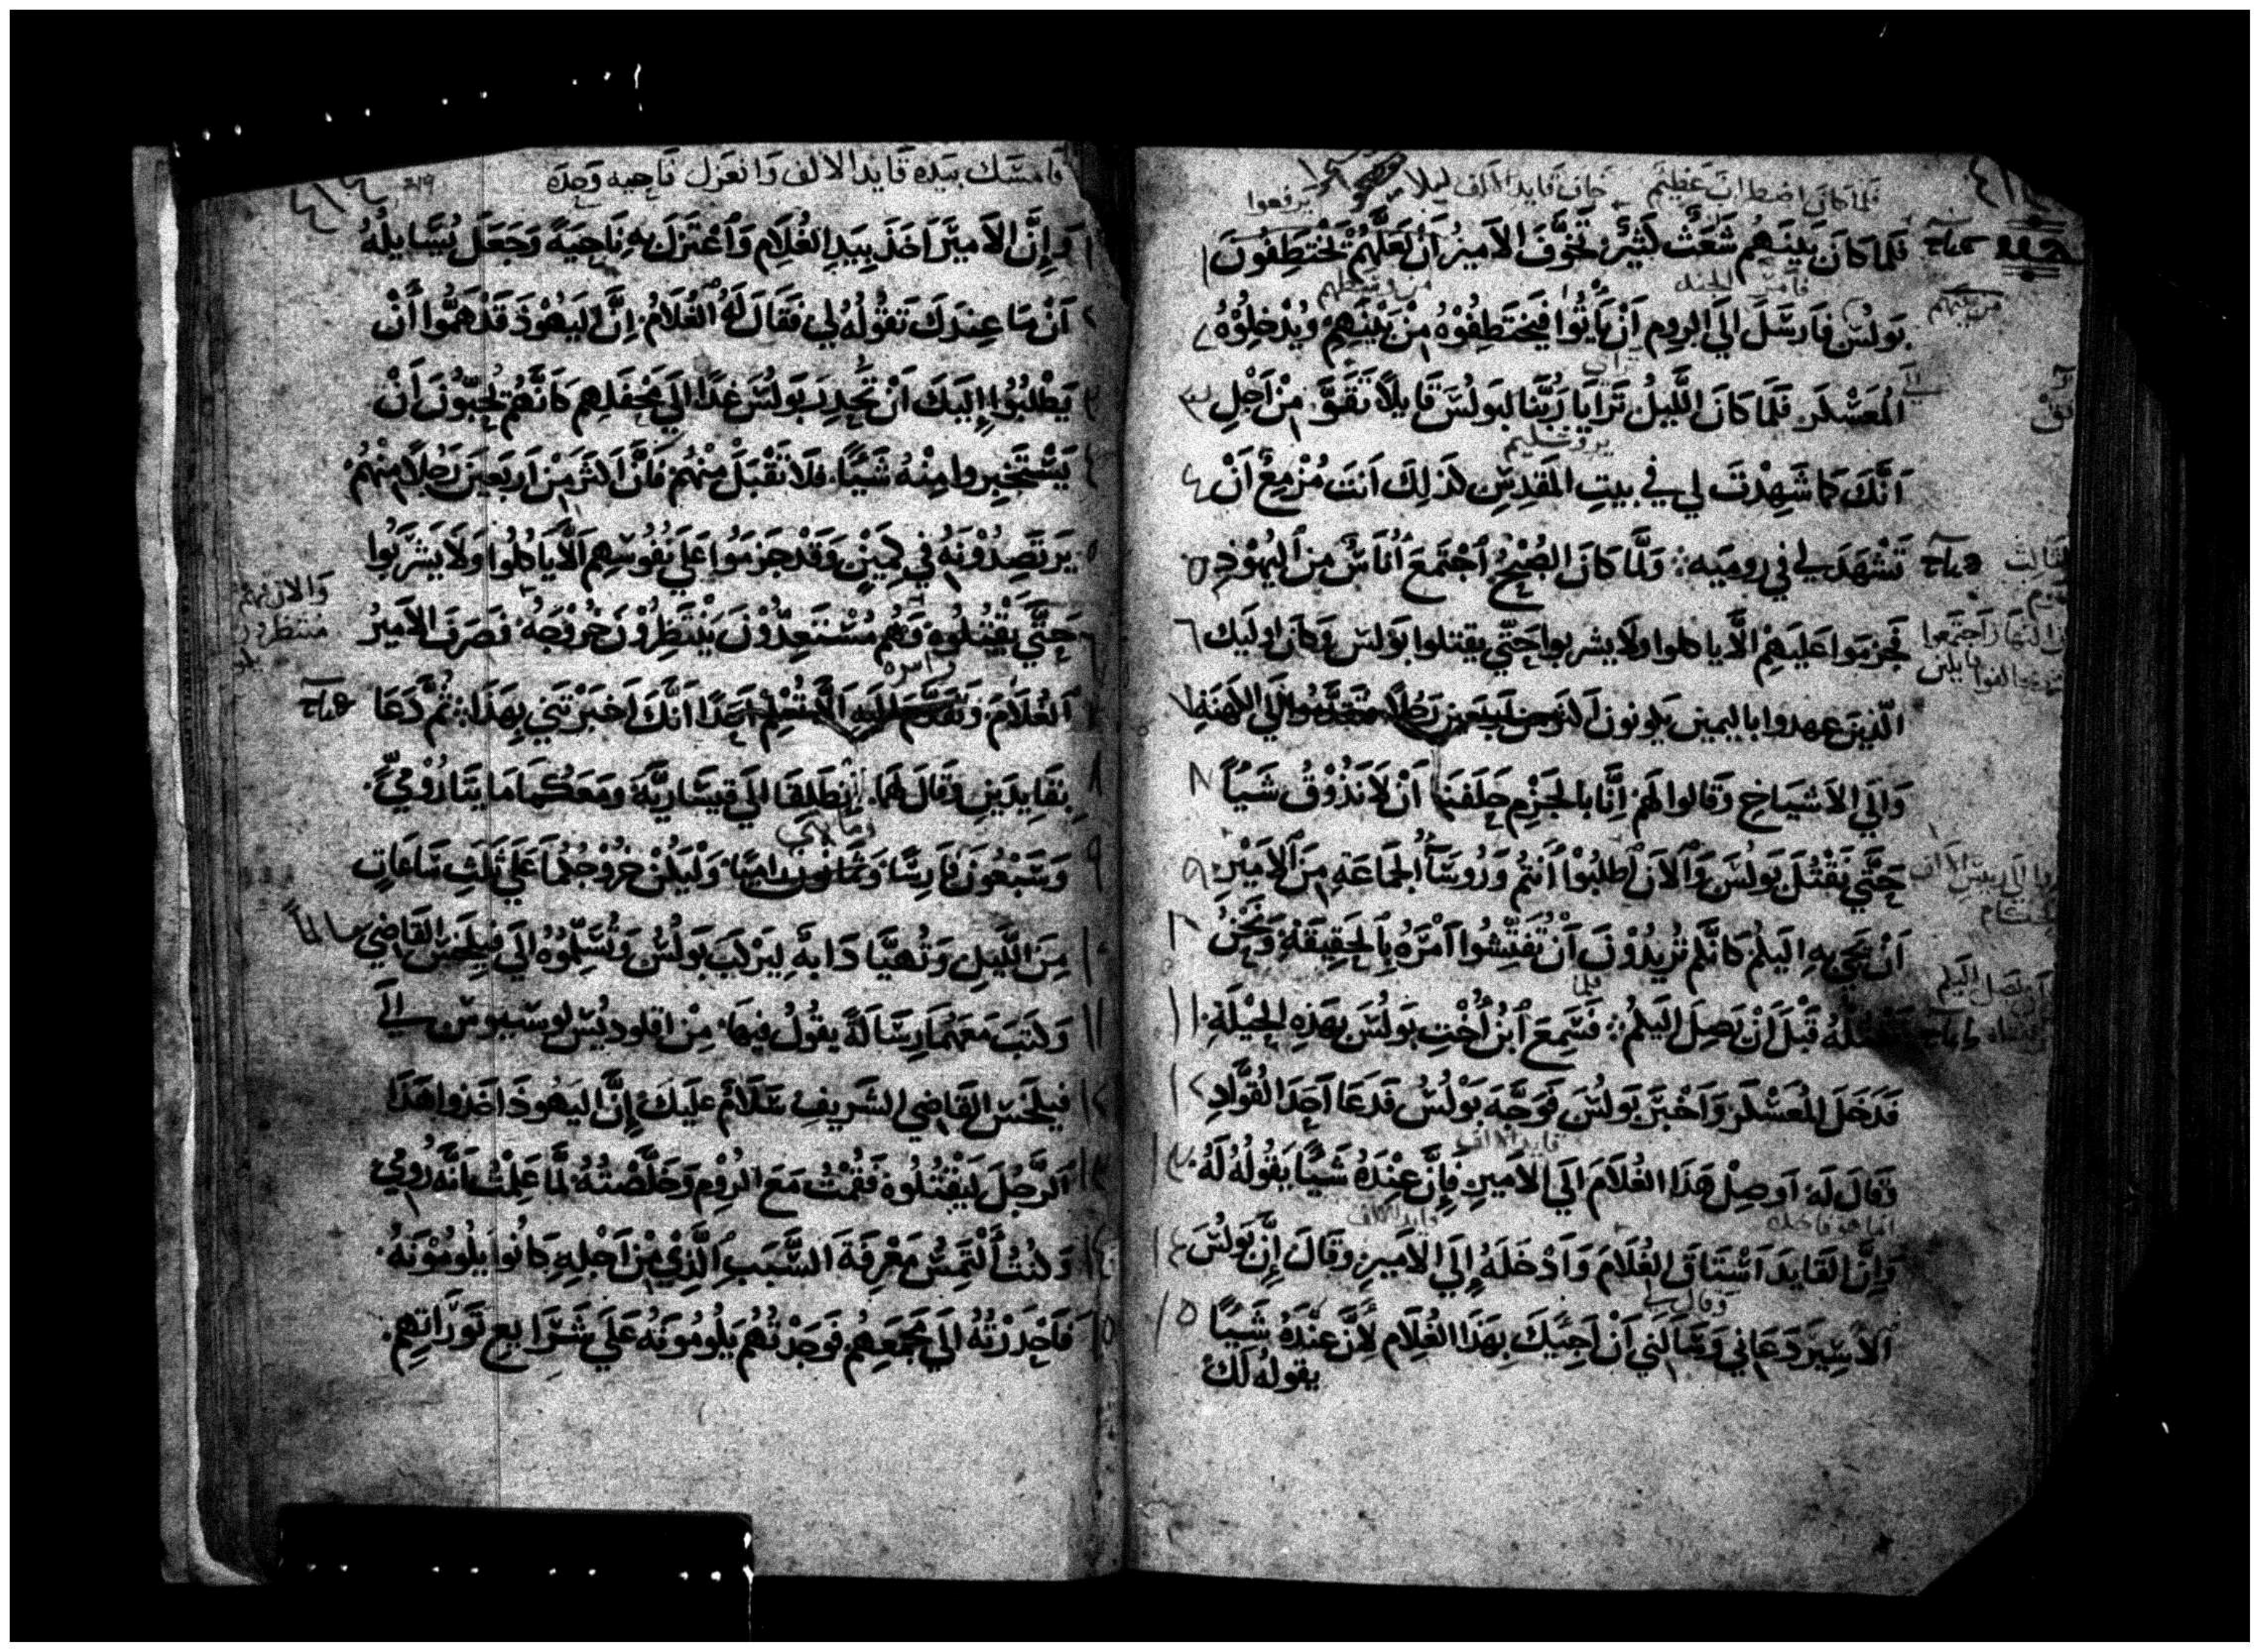 فلما كان اضطراب عظيم خاف قايد الالف ليلا يرفعوا
فَلما كانَ بَينَهم شَعَثٌ كَثِيرٌ تَخَوَّفَ الاَميرُ اَنْ لَعَلهُم يَخْتَطِفُونَ ١
بَولُسَ فاَرسَلَ الَى الروم اَنْ يَاْتُوا فَيَختَطِفُوْهُ مِنْ بَيْنَهِم وَيُدْخِلُوْهُ ٢
المُعَسْكَر. فلَمَا كانَ اللَّيلُ تَرَايَا رَبُّنَا لبَولُسَ قَايلاً تَقَوَّ مِنْ اَجْلِ ٣
يروشليم
اَنَّكَ كما شَهِدْتَ لي في بيتِ المَقدِسِ كذلِكَ اَنتَ مُزْمِعٌ اَنْ ٤
تَشْهَدَ لي في روميَه ؞ وَلَمَّا كانَ الصُبْحُ اَجْتَمَعَ اُنَاسٌ مِنَ اليُهوْدِ ٥
فجزموا عَلَيهِمْ الَّا ياكلوا ولا يشربوا حَتَّي يقتلوا بَولس وَكانَ اوليك ٦
الّذينَ عهدوا باليمين يَكونون اَكثرَ من اربعين رَجُلاً فتقدَّموا الَي الكهنَهِ ٧
وَالَي الاَشيَاخِ وَقالوا لَهم اِنَّا بالجَزْمِ حَلَفنَا اَنْ لاَ نَذُوْقُ شَيئًا ٨
حَتَّي نَقْتُلَ بَولُسَ وَالاَنَ اَطلبُوْا اَنتُم وَرُوسَآ الجَمَاعَهِ مِنَ الاَميْرِ ٩
اَنْ يَجي بهِ اليكُم كانَّكم تُريْدُوْنَ اَنْ تُفَتِّشُوا اَمْرَهُ بِالحَقِيقَهِ وَنَحْنُ ١٠
نَقْتُلُهُ قَبْلَ اَنْ يَصِلَ اليكُمْ ؞ فسَمِعَ اَبْنُ اُخْتِ بولُسَ بهَذِهِ الحِيْلَةِ ١١
فَدَخَلَ المُعَسْكَرَ وَاَخْبَرَ بَولُسَ فَوَجَّهَ بَوْلُسُ فَدَعَا اَحَدَ القُوَّادِ ١٢
قايد الالف
وَقَالَ لَهُ اوصِلْ هَذَا الغُلَامَ الَي الاَميرِ فَإِنَّ عِنْدَهُ شَيئًا يَقُولُهُ لَهُ ١٣
قايد الالف
وَاِنَّ القَايدَ اَسْتَاقَ الغُلاَمَ وَاَدْخَلَهُ اِلَي الاَميرِ وقَالَ اِنَّ بَولُسَ ١٤
الاَسِيرَ دَعَاني وَسَالَني اَنْ اَجِيكَ بِهَذا الغُلَام لاَنَّ عِنْدَهُ شَيئًا ١٥
يقوله لك
فامسك بيده قايد الالف وانعزل ناحيه وحده
٤١٤
وَاِنَّ الاَميْرَ اَخَذَ بِيَدِ الغُلَامِ وَاَعْتَزَلَ بِهِ نَاحِيَةً وَجَعَلَ يُسَايلُهُ ١
اَنْ مَا عِندَكَ تَقُولُهُ لي فَقَالَ لَهُ الغُلَامُ. اِنَّ اليَهُوْدَ قَدْ هَمُّوا اَنْ ٢
يَطْلبُوا اِلَيكَ اَنْ تَحْدِرَ بَولُسَ غَدًا الَي مَحْفَلِهِم كَانَّهُم يُحِبُّونَ اَنْ ٣
يَسْتَخبِروا مِنْهُ شَيئًا. فلَا تَقْبَلْ مِنْهُم فاَنَّ اَكثَرَ مِنْ اَربَعِيَن رَجُلًا مِنْهُم. ٤
يَرتَصِدُوْنَهُ في كَمِيْنٍ وَقَدْ جَزمُوا عَلَي نفُوسِهِم اَلَّا يَاكُلُوا وَلَا يَشرَبُوا ٥
حَتَّي يَقْتُلُوه وَهُم مُسْتَعِدُّوْنَ يَنْتَظِرُوْنَ خُرُوْجَهُ. فصَرَفَ الاَميْرُ ٦
وامره
الغُلَامَ وَتقَدَّمَ اليَهِ اَلَّا تُعْلِمْ اَحَدًا اَنَّكَ اَخبَرْتَني بِهَذَا ؞ ثُمَّ دَعَا
بِقَايِدَينِ وَقالَ لهَمَا. اَنْطَلِقَا الَي قيسَاريَّةَ وَمَعَكُمَا مَايتَا رُوْميٍّ. ٨
ومايتي
وَسَبْعُونَ فارِسًا وَثمانُونَ رامِيًا وَلْيَكُنْ خرُوْجُكُمَا عَلَي ثَلَثِ سَاعَاتٍ ٩
مِنَ اللَّيلِ وَتُهيَّا دَابهُ لِيَرْكبَ بَولُسُ وَتُسَلِّمُوْهُ الَي فِيلِخسَ القَاضِي سالماً ١٠
وَكَتَبَ مَعَهُمَا رِسَالَةً يقُولُ فِيهَا. مِنْ اقلوديُس لوسيوس الَي ١١
فيلخَسَ القَاضِي الشَريفِ سَلَامٌ عليَكَ اِنَّ اليَهُوذَ اَخَذوا هَذَا ١٢
الَرَّجُلَ لَيقْتُلُوه فَقُمْتُ مَعَ الرُوْمِ وَخَلَّصْتُهُ لَمَّا عَلِمْتُ اَنَّهُ رُوْميٌ ١٣
وَكنْتُ اَلْتَمِسُ مَعْرِفَةَ السَّبَبِ الَّذِيْ مِنْ اَجْلِهِ كانُوا يلُومُوْنَهُ. ١٤
فَاَحْدَرْتُهُ الَي مَجْمَعِهِم فوَجَدْتُهُم يَلُومُونَهُ عَلَي شَرَايعِ تَوْرَاتِهِم. ١٥